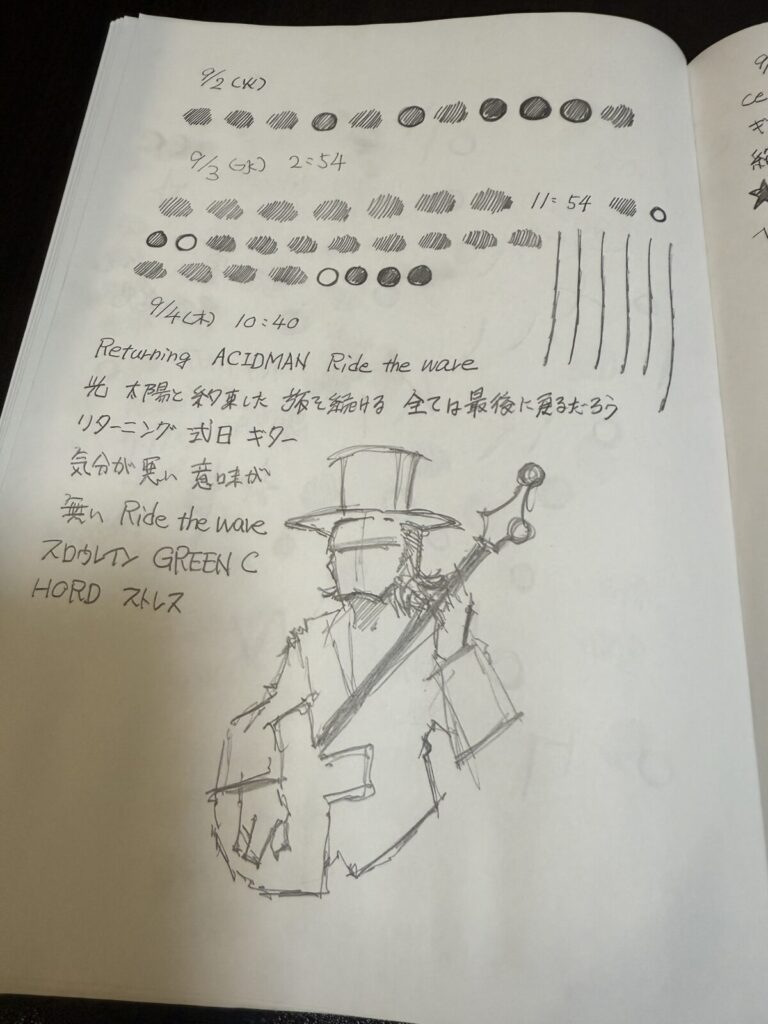 9/2(火)
9/3(水) 2:54
11:54
9/4(木) 10:40
Returning ACIDMAN Ride the wave
光 太陽と約束した 振を続ける 全ては最後に戻るだろう
リターニング 式日 ギター
気分が悪い 意味が
無い Ride the wave
スロウレイン GREEN C
HORD ストレス
9/
ce
ギ